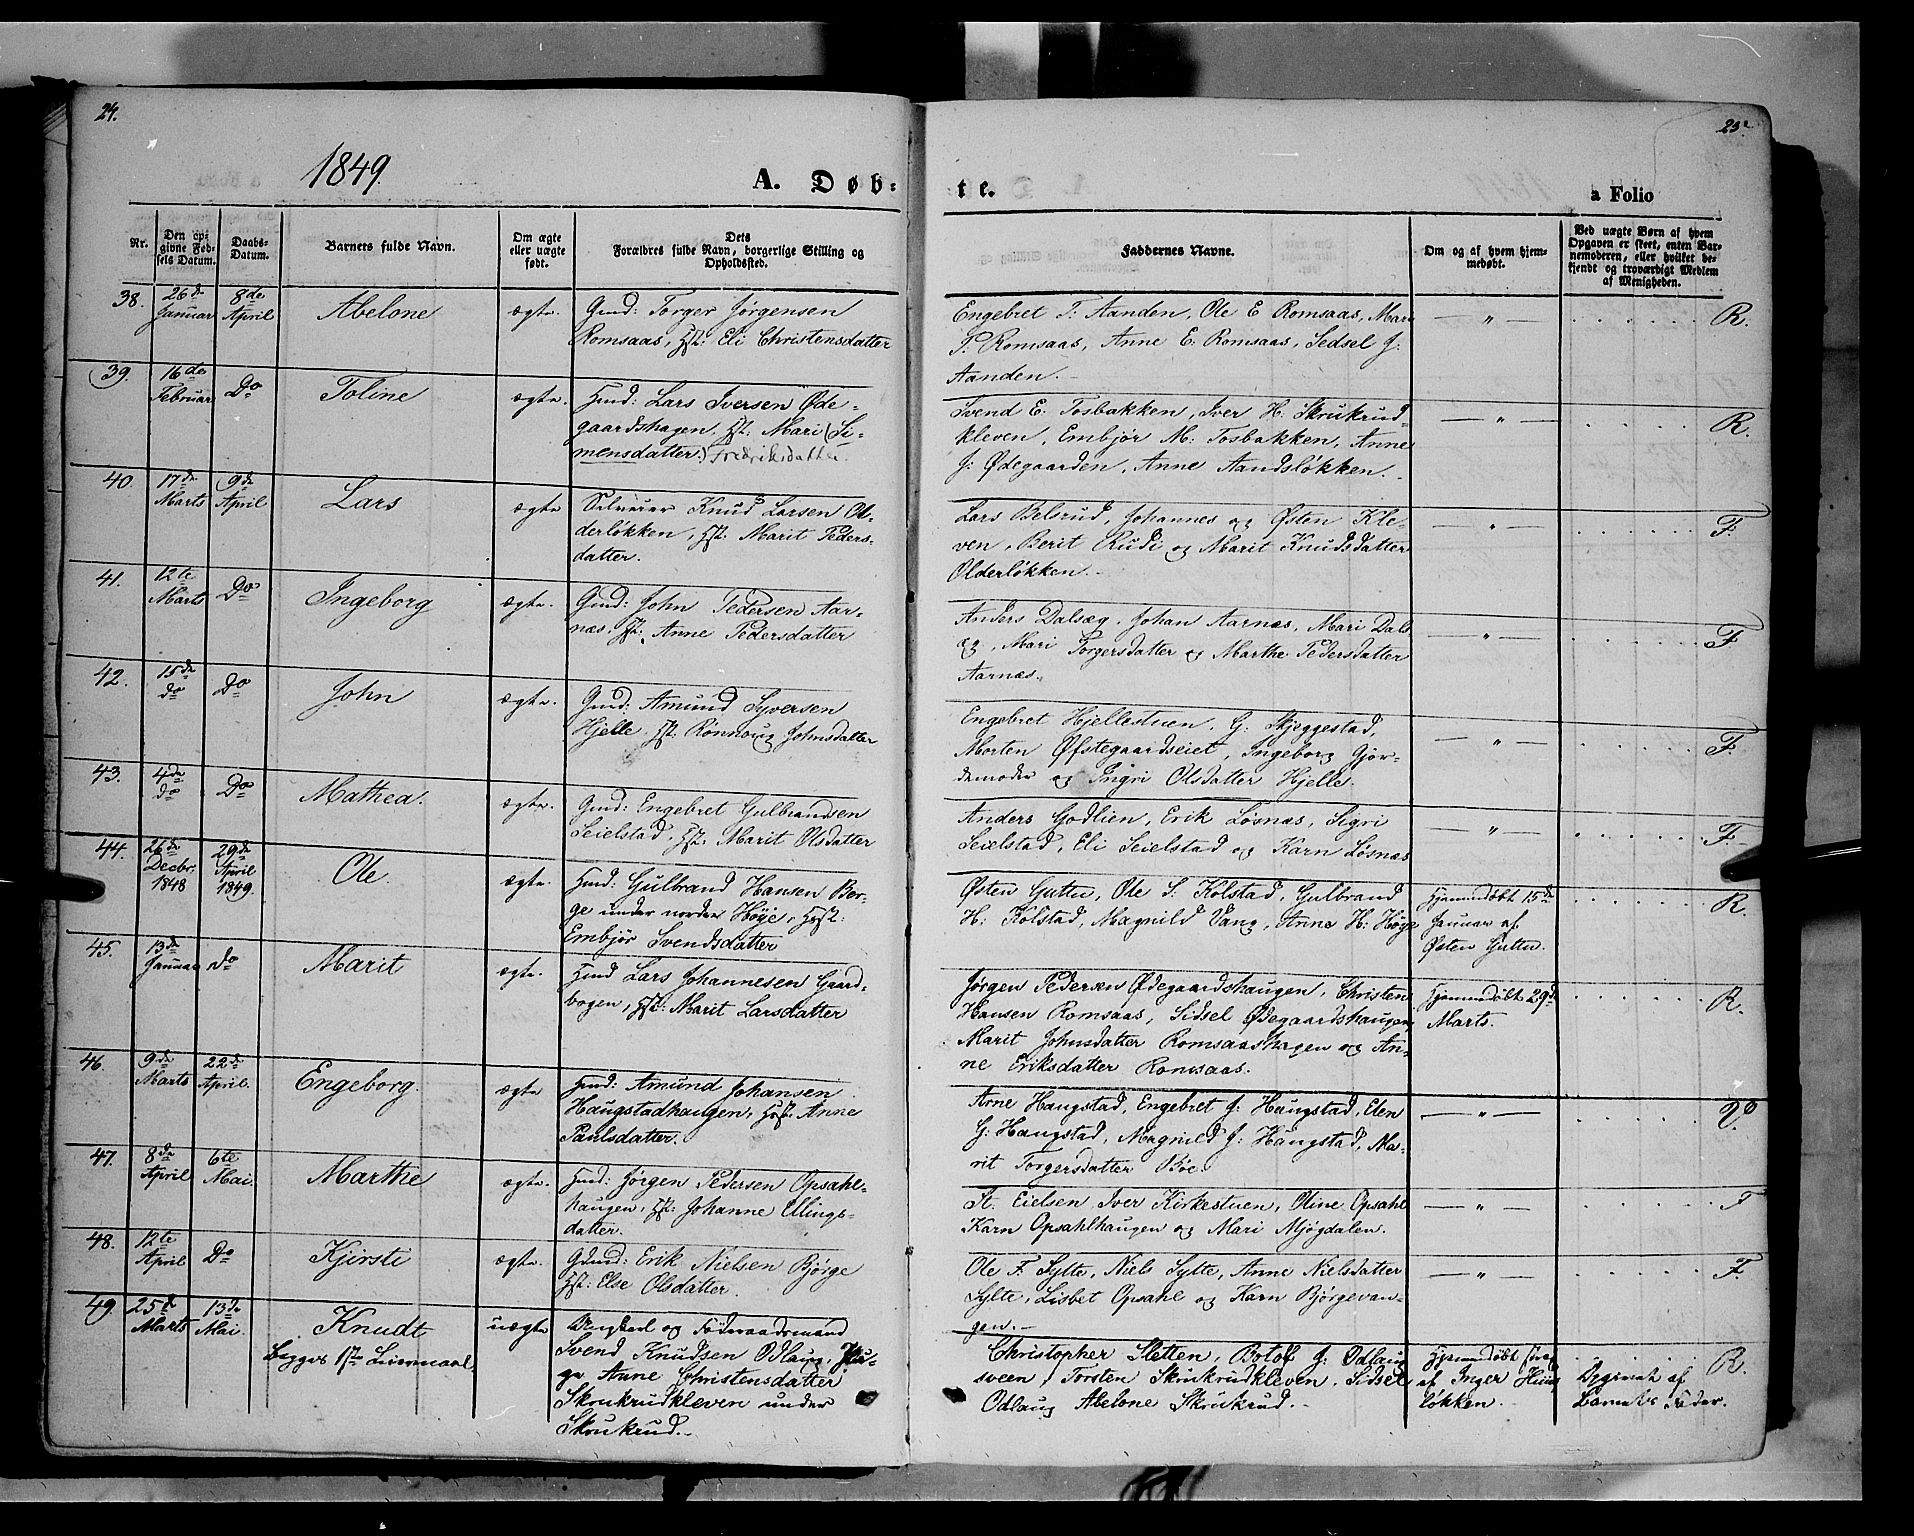 24.
25.
1849.
A. Døb-
te.
a Folio
Nr.
Den op-
givne Fød-
sels Datum.
Daabs-
Datum.
Barnets fulde Navn.
Om ægte
eller uægte
født.
Dets
Forældres fulde Navn, borgerlige Stilling og
Opholdsted.
Faddernes Navne.
Om og af hvem hjem-
medøbt.
Ved uægte Børn af hvem
Opgaven er skeet, enten Bar-
nemoderen, eller hvilket be-
kjendt og troværdigt Medlem
af Menigheden.
38. 26de Januar 8de April Abelone ægte.
Gmd: Torger Jørgensen
Romsaas, Hst: Eli Christensdatter
Engebret T: Aanden, Ole E Romsaas, Mari
P: Romsaas, Anne E: Romsaas, Sedsel J:
Aanden.
— " — R.
39. 16de Februar Do Toline ægte.
Hmd: Lars Iversen Øde-
gaardshagen, Hst: Mari (Si-
mensdatter.) Fredriksdatter.
Svend E: Tosbakken, Iver H: Skrukrud-
kleven, Embjør M: Tosbakken, Anne
J: Ødegaarden, Anne Aandsløkken.
— " — R.
40. 17de Marts 9de April Lars ægte
Selveier Knud Larsen Ol-
derløkken, Hst: Marit Peders-
datter.
Lars Belsrud, Johannes og Østen Kle-
ven, Berit Rudi og Marit Knudsdatter
Olderløkken.
— " — F.
41. 12te Marts Do Ingeborg ægte.
Gmd: John Pedersen Aar-
næs, Hst: Anne Pedersdatter
Anders Dalsæg, Johan Aarnæs, Mari Dals
æg, Mari Torgersdatter og Marthe Pedersdatter
Aarnæs.
— " — F.
42. 15de do Do John ægte.
Gmd: Amund Syversen
Hjelle. Hst: Rønnoug Johnsdatter
Engebret Hjellestuen, G: Skjeggestad,
Morten Øfstegaardseiet, Ingeborg Gjor-
demoder og Ingri Olsdatter Hjelle.
— " — F.
43. 4de do Do Mathea. ægte.
Gmd: Engebret Gulbrandsen
Seielstad, Hst: Marit Olsdatter
Anders Godlien, Erik Løsnæs, Sigri
Seielstad, Eli Seielstad og Karn Løsnæs
— " — F.
44. 26de Decbr: 1848 29de April 1849. Ole ægte.
Hmd: Gulbrand Hansen Ber-
ge under nordre Høye, Hst:
Embjør Svendsdatter
Østen Guttu, Ole S. Kolstad, Gulbrand
H: Kolstad, Magnild Vang, Anne H: Høye
Hjemmedøbt 15de
Januar af
Østen Guttu.
R.
45. 13de Januar do Marit ægte.
Hmd Lars Johannesen Gaard-
bogen, Hst: Marit Larsdatter
Jørgen Pedersen Ødegaardshaugen, Christen
Hansen Romsaas, Sidsel Ødegaardshaugen,
Marit Johnsdatter Romsaashagen og An-
ne Eriksdatter Romsaas.
Hjemmedøbt 29de
Marts.
R.
46. 9de Marts 22de April. Engeborg. ægte
Hmd: Amund Johansen
Haugstadhaugen, Hst: Anne
Paulsdatter.
Arne Haugstad, Engebret J: Haugstad, Elen
G: Haugstad, Magnild J: Haugstad, Ma-
rit Torgersdatter Bøe.
— " —
47. 8de April 6te Mai. Marthe ægte.
Hmd: Jørgen Pedersen Opsahl-
haugen, Hst: Johanne Ellings-
datter.
St. Eielsen Iver Kirkestuen, Oline Opsahl
Karn Opsahlhaugen og Mari Mjøgdalen.
— " — F
48. 12te April Do Kjersti ægte.
Gmd: Erik Nielsen Bjørge
Hst: Else Olsdatter.
Ole F. Sylte, Niels Sylte, Anne Nielsdatter
Sylte, Lisbet Opsahl og Karn Bjørgevan-
gen.
— " — F.
49. 25de Marts 13de Mai. Knudt uægte
Begges 1ste Leiermaal.
Ungkarl og Føderaadsmand
Svend Knudsen Odlaug, Pi-
ge Anne Christensdatter
Skrukrudkleven under
Skrukrud.
Christopher Sletten, Botolf J: Odlaug
sveen, Torsten Skrukrudkleven, Sidsel
Odlaug Abelone Skrukrud.
Hjemmedøbt
af Inger
løkken.
af
Barnets Fader.
R.